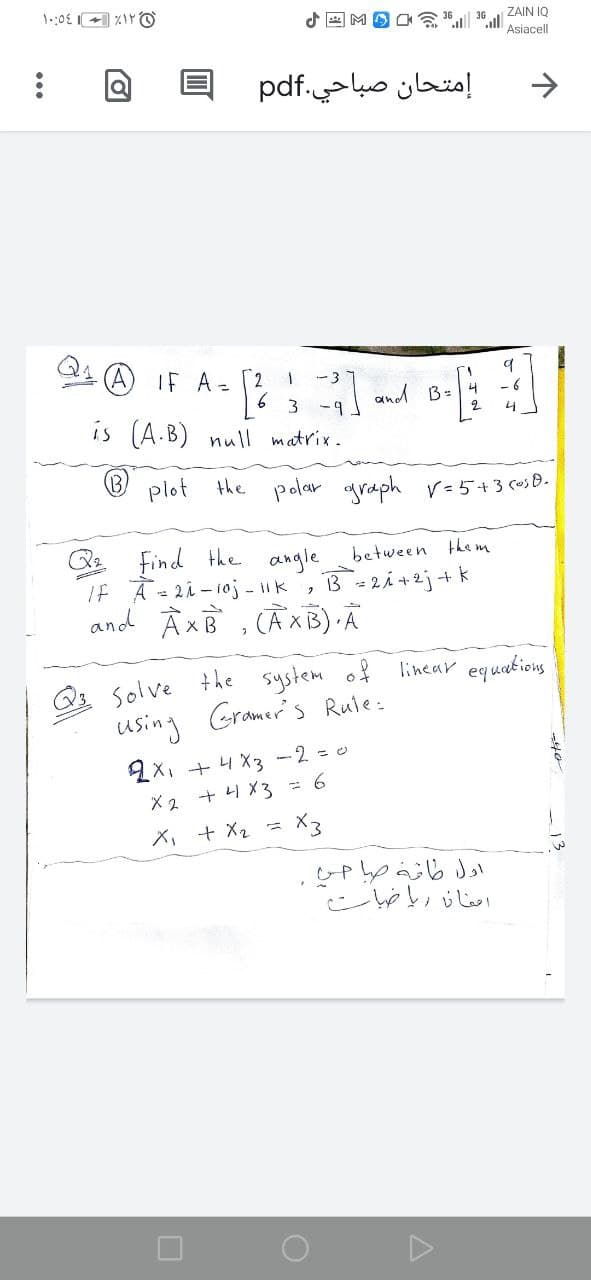 ١٠:٥٤ ٪١٢ 3G 3G ZAIN IQ
Asiacell
إمتحان صباحي.pdf
Q1 (A) IF A = [2 1 -3
6 3 -9] and B = [1 9
4 -6
2 4]
is (A.B) null matrix.
(B) plot the polar graph r = 5 + 3 cos θ.
Q2 Find the angle between them
IF A⃗ = 2i - 10j - 11k , B⃗ = 2i + 2j + k
and A⃗ x B⃗ , (A⃗ x B⃗) . A⃗
Q3 Solve the system of linear equations
using Gramer's Rule:
2x1 + 4x3 - 2 = 0
x2 + 4x3 = 6
x1 + x2 = x3
صباحي
رياضيات